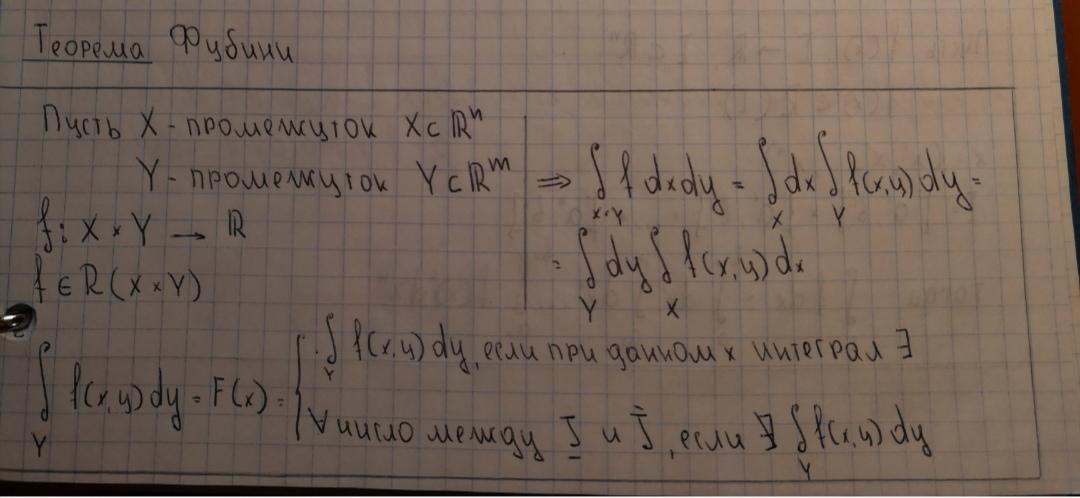 Теорема Фубини
Пусть X - промежуток X ⊂ ℝⁿ
Y - промежуток Y ⊂ ℝᵐ
f: X × Y → ℝ
f ∈ R(X × Y)
⇒ ∫_{X×Y} f dxdy = ∫_X dx ∫_Y f(x,y) dy =
= ∫_Y dy ∫_X f(x,y) dx
∫_Y f(x,y) dy = F(x) = { ∫_Y f(x,y) dy, если при данном x интеграл ∃
∀ число между I̲ и Ī, если ∄ ∫_Y f(x,y) dy